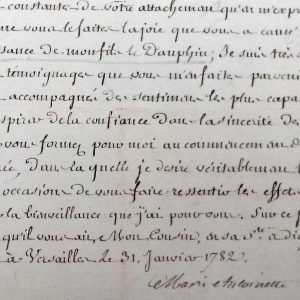 constante de votre attachement qu'en m'expr
me vous le faites la joie que vous a causé
sance de mon fils le Dauphin; Je suis très
témoignages que vous m'en faites parven
accompagnés des sentimens les plus capa
spirer de la confiance dans la sincerité des
vous formez pour moi au commencem
ée, dans la quelle je desire véritablement
occasions de vous faire ressentir les effet
la bienveillance que j'ai pour vous. Sur ce
qu'il vous ait, Mon Cousin, en sa s.te
à Versailles le 31. Janvier 1782.
Marie Antoinette